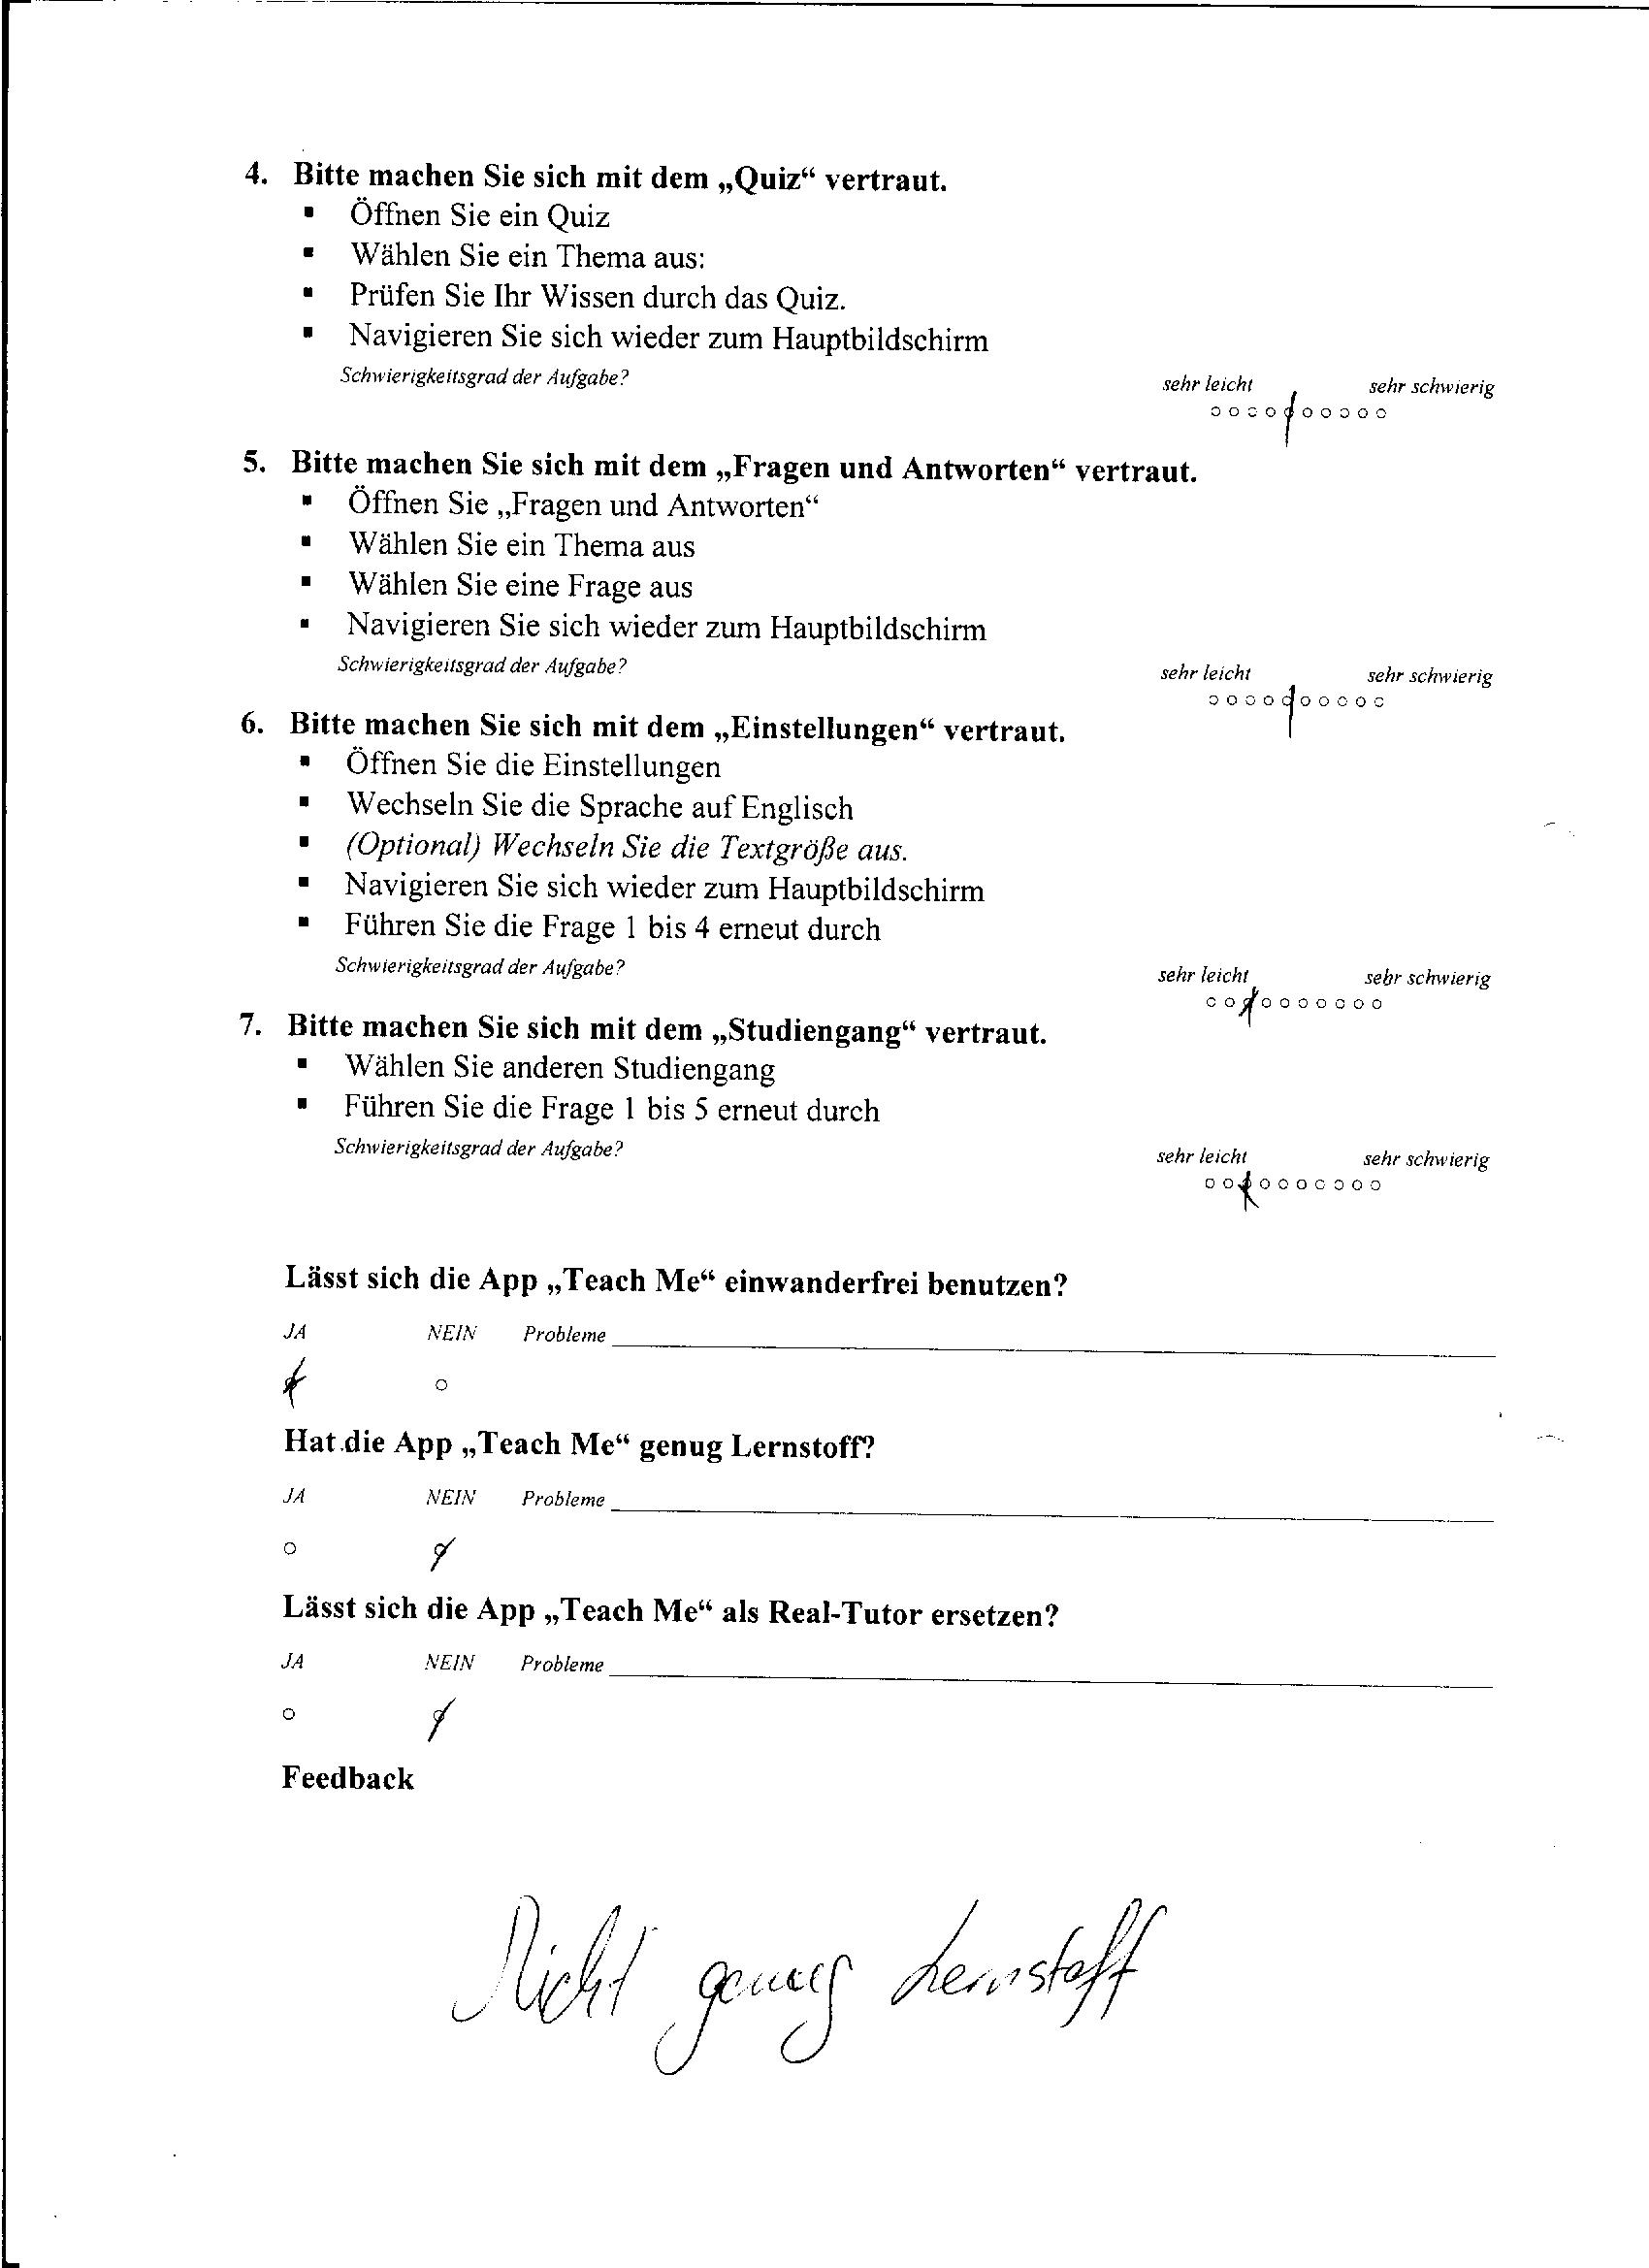 4. Bitte machen Sie sich mit dem „Quiz“ vertraut.
▪ Öffnen Sie ein Quiz
▪ Wählen Sie ein Thema aus:
▪ Prüfen Sie Ihr Wissen durch das Quiz.
▪ Navigieren Sie sich wieder zum Hauptbildschirm
Schwierigkeitsgrad der Aufgabe? sehr leicht sehr schwierig
5. Bitte machen Sie sich mit dem „Fragen und Antworten“ vertraut.
▪ Öffnen Sie „Fragen und Antworten“
▪ Wählen Sie ein Thema aus
▪ Wählen Sie eine Frage aus
▪ Navigieren Sie sich wieder zum Hauptbildschirm
Schwierigkeitsgrad der Aufgabe? sehr leicht sehr schwierig
6. Bitte machen Sie sich mit dem „Einstellungen“ vertraut.
▪ Öffnen Sie die Einstellungen
▪ Wechseln Sie die Sprache auf Englisch
▪ (Optional) Wechseln Sie die Textgröße aus.
▪ Navigieren Sie sich wieder zum Hauptbildschirm
▪ Führen Sie die Frage 1 bis 4 erneut durch
Schwierigkeitsgrad der Aufgabe? sehr leicht sehr schwierig
7. Bitte machen Sie sich mit dem „Studiengang“ vertraut.
▪ Wählen Sie anderen Studiengang
▪ Führen Sie die Frage 1 bis 5 erneut durch
Schwierigkeitsgrad der Aufgabe? sehr leicht sehr schwierig
Lässt sich die App „Teach Me“ einwanderfrei benutzen?
JA NEIN Probleme
Hat die App „Teach Me“ genug Lernstoff?
JA NEIN Probleme
Lässt sich die App „Teach Me“ als Real-Tutor ersetzen?
JA NEIN Probleme
Feedback
Nicht genug Lernstoff